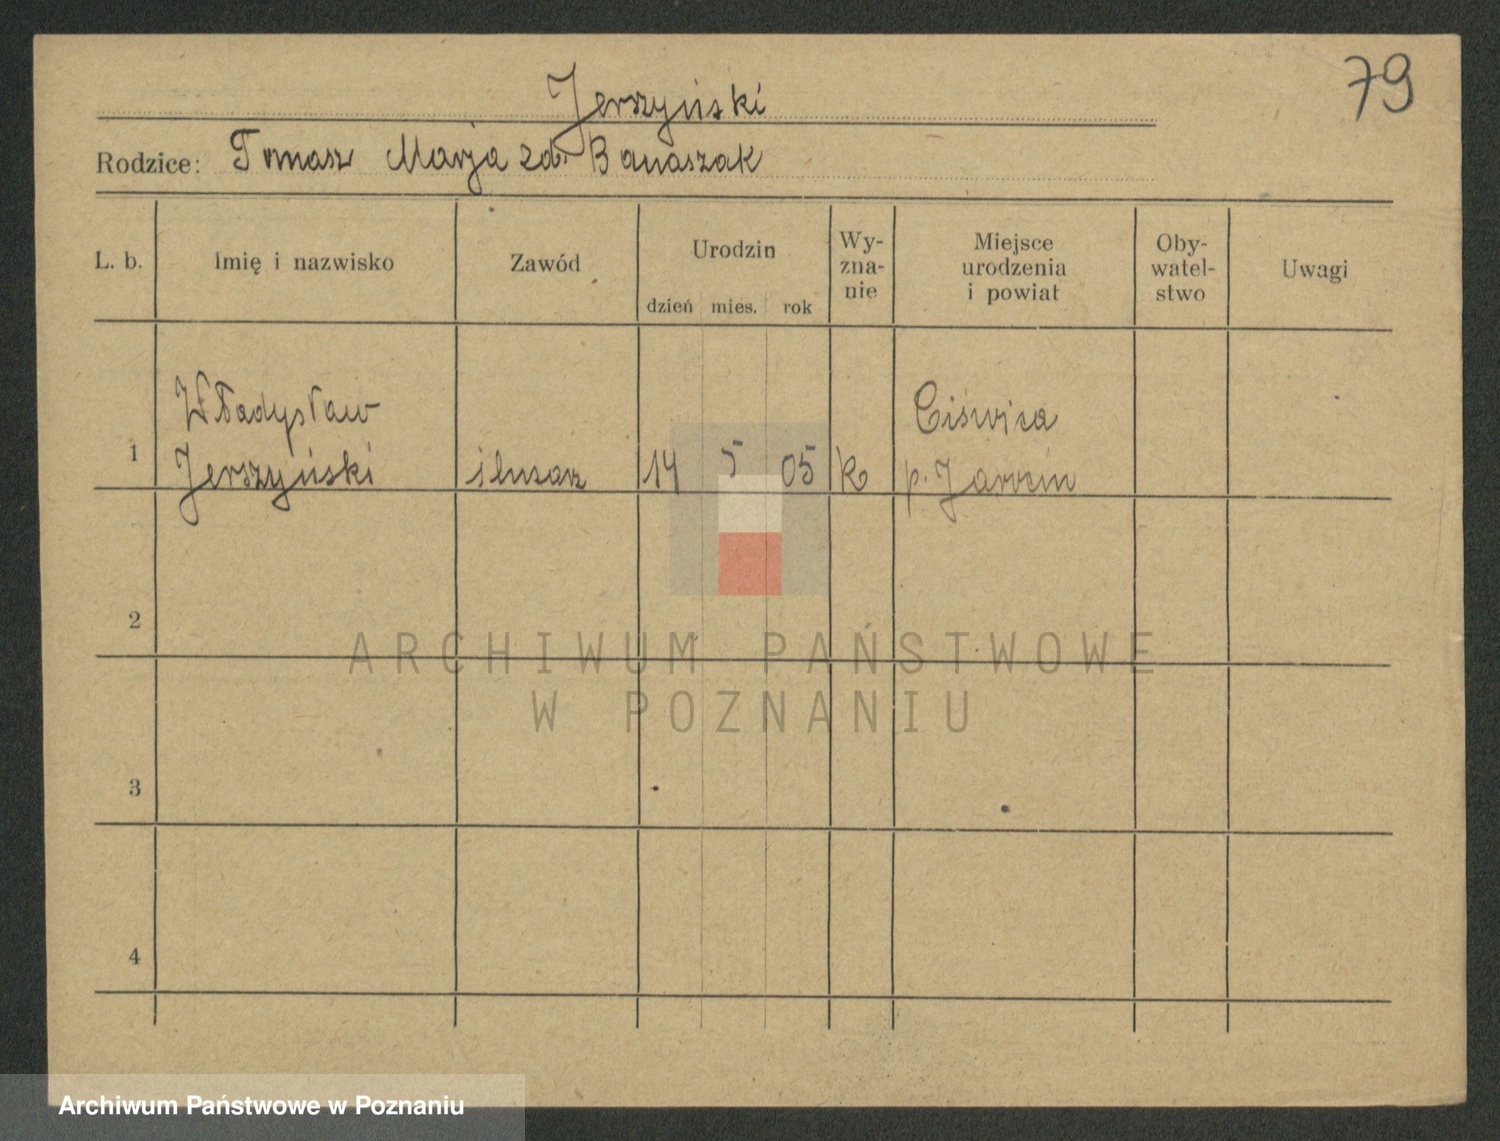 79
Jerszyński
Rodzice: Tomasz Marja zd. Banaszak
L. b. Imię i nazwisko Zawód Urodzin dzień mies. rok Wy-zna-nie Miejsce urodzenia i powiat Oby-watel-stwo Uwagi
Władysław Ciświca
1 Jerszyński ślusarz 14 5 05 k p. Jarocin
2
ARCHIWUM PAŃSTWOWE
W POZNANIU
3
4
Archiwum Państwowe w Poznaniu